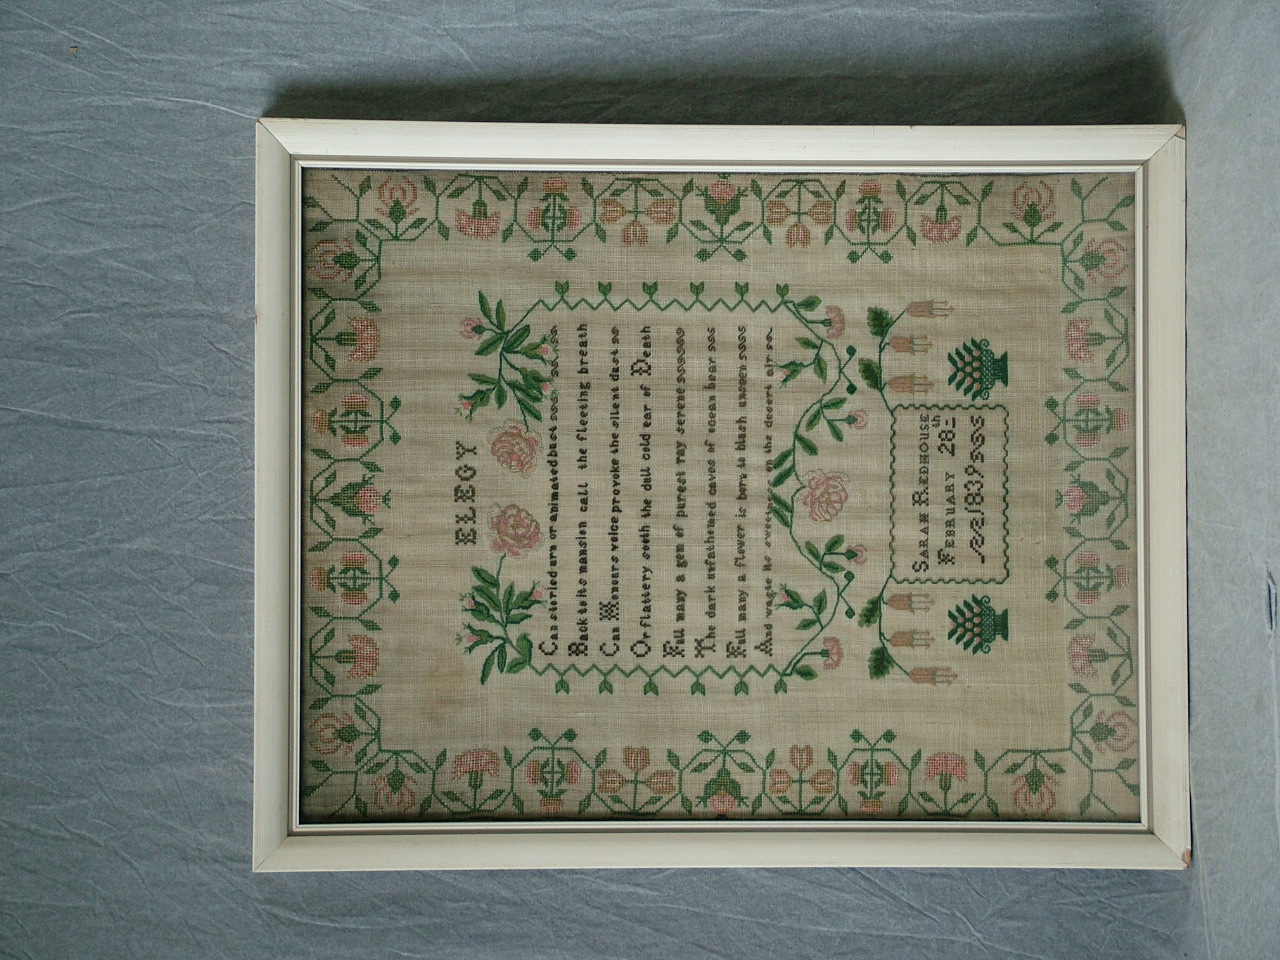 ELEGY
Can storied urn or animated bust
Back to its mansion call the fleeting breath
Can Honours voice provoke the silent dust
Or flattery sooth the dull cold ear of Death
Full many a gem of purest ray serene
The dark unfathomed caves of ocean bear
Full many a flower is born to blush unseen
And waste its sweetness on the desert air
SARAH REDHOUSE
FEBRUARY 28th
1839